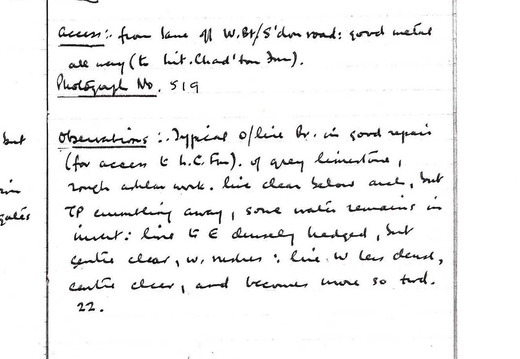 Access:- from lane off W.Bt/S'don road: good metal
all way (to Lit. Chad'ton Fm).
Photograph No. 519
but
Observations:- Typical O/line Br. in good repair
(for access to L.C. Fm). of grey limestone,
rough ashlar work. line clear below arch, but
gates
TP crumbling away, some water remains in
invert: line to E densely hedged, but
centre clear, w. rushes: line W less dense,
centre clear, and becomes more so twd.
22.